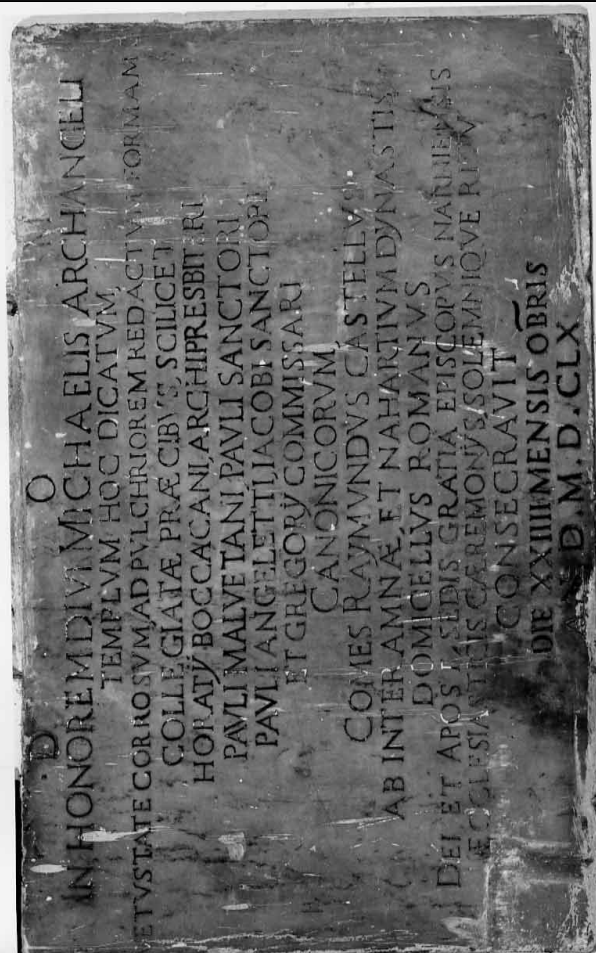 D O M
IN HONOREM DIVI MICHAELIS ARCHANGELI
TEMPLVM HOC DICATVM
ETVSTATE CORROSVM AD PVLCHRIOREM REDACTVM FORMAM
COLLEGIATÆ PRÆCIBVS, SCILICET
HORATIJ BOCCACANI ARCHIPRESBITERI
PAVLI MALVETANI PAVLI SANCTORI
PAVLI ANGELETTI JACOBI SANCTORI
ET GREGORIJ COMMISSARI
CANONICORVM
COMES RAYMVNDVS CASTELLVS
AB INTERAMNÆ ET NAHARTIVM DYNASTIS
DOMICELLVS ROMANVS
DEI ET APOS SEDIS GRATIA EPISCOPVS NARNIENSIS
CÆREMONIIS SOLEMNIQVE RITV
CONSECRAVIT
DIE XXIIII MENSIS OBRIS
D. M. D. CLX